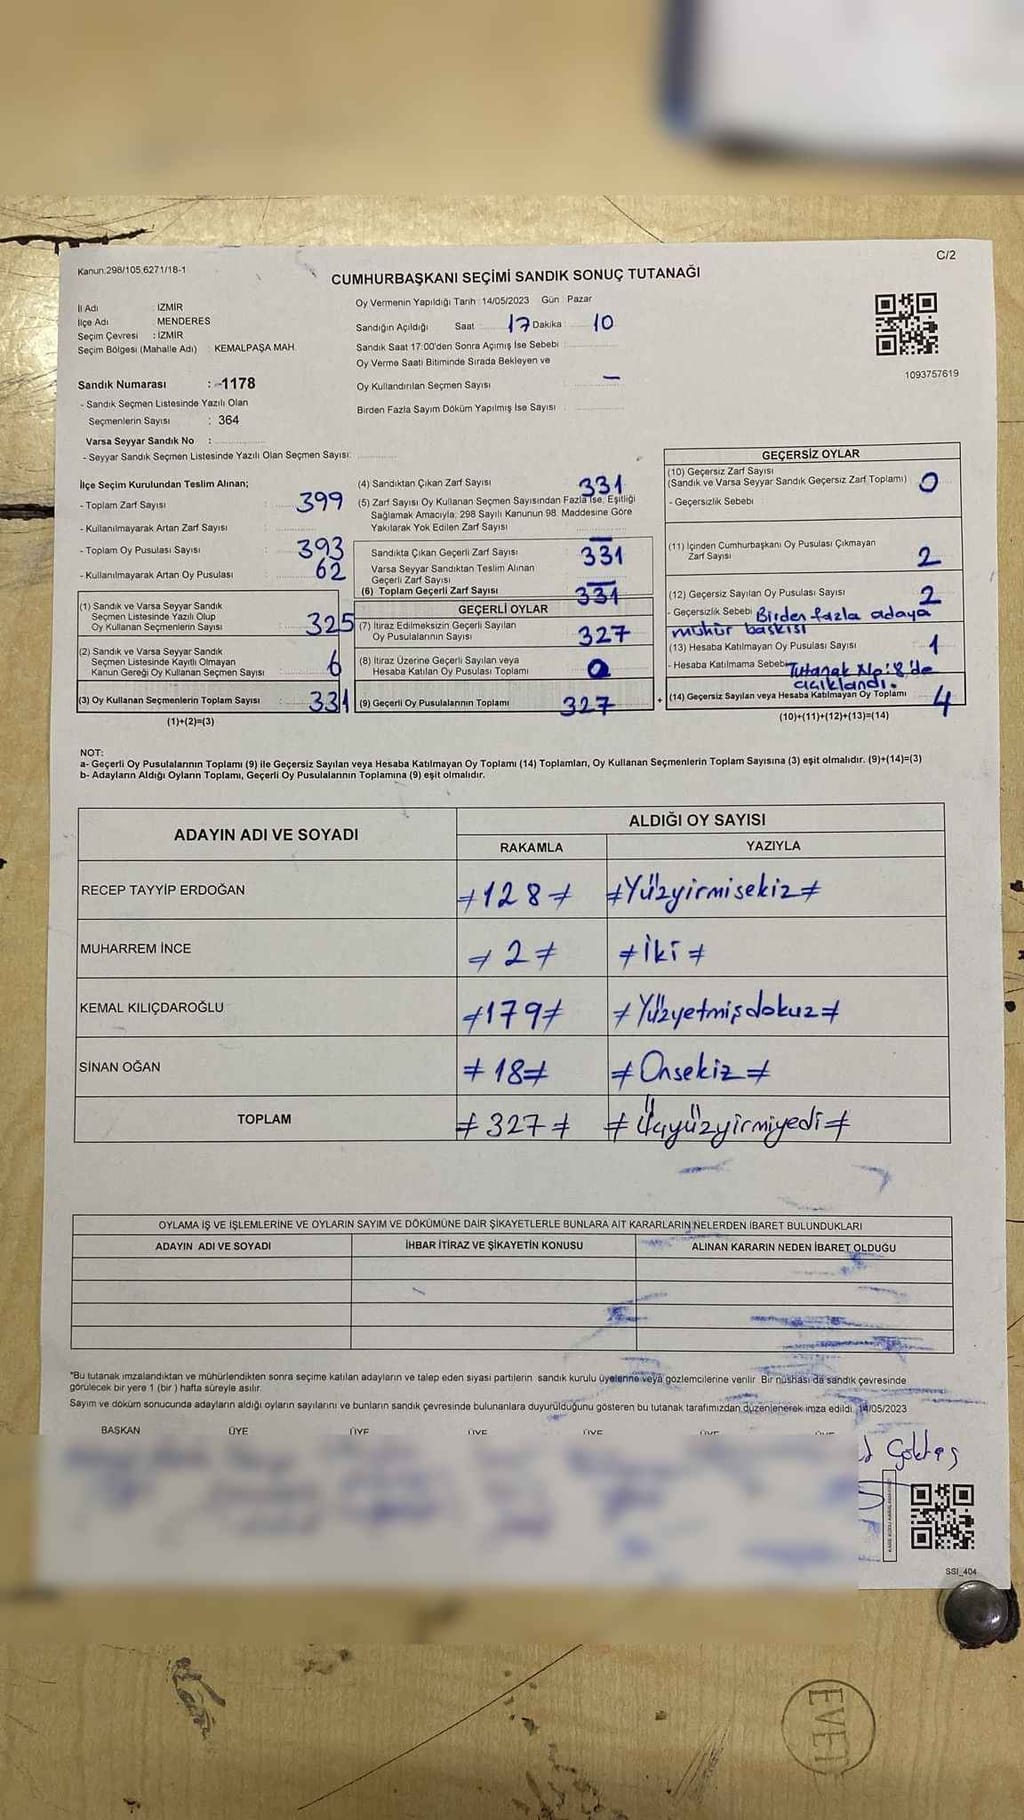 C/2
Kanun:298/105,6271/18-1
CUMHURBAŞKANI SEÇİMİ SANDIK SONUÇ TUTANAĞI
İl Adı : İZMİR
İlçe Adı : MENDERES
Seçim Çevresi : İZMİR
Seçim Bölgesi (Mahalle Adı) : KEMALPAŞA MAH.
Oy Vermenin Yapıldığı Tarih : 14/05/2023 Gün : Pazar
Sandığın Açıldığı Saat 17 Dakika 10
Sandık Saat 17:00'den Sonra Açımış İse Sebebi
Oy Verme Saati Bitiminde Sırada Bekleyen ve
Oy Kullandırılan Seçmen Sayısı : –
Birden Fazla Sayım Döküm Yapılmış İse Sayısı :
1093757619
Sandık Numarası : 1178
- Sandık Seçmen Listesinde Yazılı Olan
Seçmenlerin Sayısı : 364
Varsa Seyyar Sandık No :
- Seyyar Sandık Seçmen Listesinde Yazılı Olan Seçmen Sayısı:
İlçe Seçim Kurulundan Teslim Alınan;
- Toplam Zarf Sayısı 399
- Kullanılmayarak Artan Zarf Sayısı
- Toplam Oy Pusulası Sayısı : 393
- Kullanılmayarak Artan Oy Pusulası 62
(1) Sandık ve Varsa Seyyar Sandık
Seçmen Listesinde Yazılı Olup
Oy Kullanan Seçmenlerin Sayısı 325
(2) Sandık ve Varsa Seyyar Sandık
Seçmen Listesinde Kayıtlı Olmayan
Kanun Gereği Oy Kullanan Seçmen Sayısı 6
(3) Oy Kullanan Seçmenlerin Toplam Sayısı 331
(1)+(2)=(3)
(4) Sandıktan Çıkan Zarf Sayısı 331
(5) Zarf Sayısı Oy Kullanan Seçmen Sayısından Fazla İse, Eşitliği
Sağlamak Amacıyla; 298 Sayılı Kanunun 98. Maddesine Göre
Yakılarak Yok Edilen Zarf Sayısı –
Sandıkta Çıkan Geçerli Zarf Sayısı 331
Varsa Seyyar Sandıktan Teslim Alınan
Geçerli Zarf Sayısı –
(6) Toplam Geçerli Zarf Sayısı 331
GEÇERLİ OYLAR
(7) İtiraz Edilmeksizin Geçerli Sayılan
Oy Pusulalarının Sayısı 327
(8) İtiraz Üzerine Geçerli Sayılan veya
Hesaba Katılan Oy Pusulası Toplamı 0
(9) Geçerli Oy Pusulalarının Toplamı 327
+
GEÇERSİZ OYLAR
(10) Geçersiz Zarf Sayısı
(Sandık ve Varsa Seyyar Sandık Geçersiz Zarf Toplamı) 0
- Geçersizlik Sebebi
(11) İçinden Cumhurbaşkanı Oy Pusulası Çıkmayan
Zarf Sayısı 2
(12) Geçersiz Sayılan Oy Pusulası Sayısı 2
- Geçersizlik Sebebi Birden fazla adaya
mühür baskısı
(13) Hesaba Katılmayan Oy Pusulası Sayısı 1
- Hesaba Katılmama Sebebi Tutanak No:8'de
açıklandı.
(14) Geçersiz Sayılan veya Hesaba Katılmayan Oy Toplamı 4
(10)+(11)+(12)+(13)=(14)
NOT:
a- Geçerli Oy Pusulalarının Toplamı (9) ile Geçersiz Sayılan veya Hesaba Katılmayan Oy Toplamı (14) Toplamları, Oy Kullanan Seçmenlerin Toplam Sayısına (3) eşit olmalıdır. (9)+(14)=(3)
b- Adayların Aldığı Oyların Toplamı, Geçerli Oy Pusulalarının Toplamına (9) eşit olmalıdır.
ADAYIN ADI VE SOYADI ALDIĞI OY SAYISI
RAKAMLA YAZIYLA
RECEP TAYYİP ERDOĞAN ≠128≠ ≠Yüzyirmisekiz≠
MUHARREM İNCE ≠2≠ ≠İki≠
KEMAL KILIÇDAROĞLU ≠179≠ ≠Yüzyetmişdokuz≠
SİNAN OĞAN ≠18≠ ≠Onsekiz≠
TOPLAM ≠327≠ ≠Üçyüzyirmiyedi≠
OYLAMA İŞ VE İŞLEMLERİNE VE OYLARIN SAYIM VE DÖKÜMÜNE DAİR ŞİKAYETLERLE BUNLARA AİT KARARLARIN NELERDEN İBARET BULUNDUKLARI
ADAYIN ADI VE SOYADI İHBAR İTİRAZ VE ŞİKAYETİN KONUSU ALINAN KARARIN NEDEN İBARET OLDUĞU
*Bu tutanak imzalandıktan ve mühürlendikten sonra seçime katılan adayların ve talep eden siyasi partilerin sandık kurulu üyelerine veya gözlemcilerine verilir. Bir nüshası da sandık çevresinde
görülecek bir yere 1 (bir) hafta süreyle asılır.
Sayım ve döküm sonucunda adayların aldığı oyların sayılarını ve bunların sandık çevresinde bulunanlara duyurulduğunu gösteren bu tutanak tarafımızdan düzenlenerek imza edildi. 14/05/2023
BAŞKAN ÜYE ÜYE ÜYE ÜYE ÜYE ÜYE
Göktaş
SSI_404
EVET